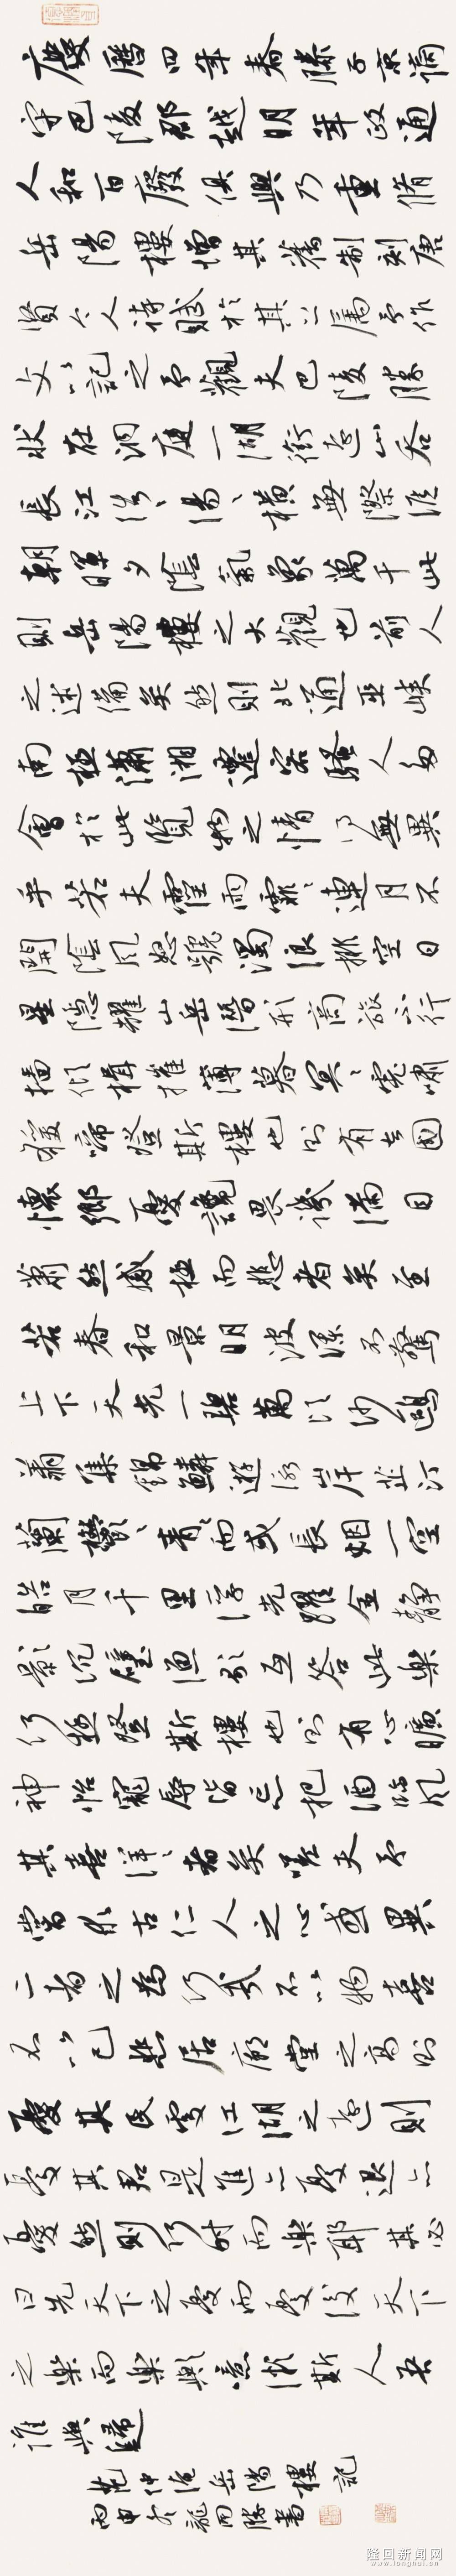 慶曆四年春滕子京謫
守巴陵郡越明年政通
人和百廢俱興乃重脩
岳陽樓增其舊制刻唐
賢今人詩賦於其上屬予作
文以記之予觀夫巴陵勝
狀在洞庭一湖銜遠山吞
長江浩〻湯〻橫無際涯
朝暉夕陰氣象萬千此
則岳陽樓之大觀也前人
之述備矣然則北通巫峽
南極瀟湘遷客騷人多
會於此覽物之情得無異
乎若夫霪雨霏〻連月不
開陰風怒號濁浪排空日
星隱耀山岳潛形商旅不行
檣傾楫摧薄暮冥〻虎嘯
猿啼登斯樓也則有去國
懷鄉憂讒畏譏滿目
蕭然感極而悲者矣至
若春和景明波瀾不驚
上下天光一碧萬頃沙鷗
翔集錦鱗游泳岸芷汀
蘭鬱〻青〻而或長烟一空
皓月千里浮光躍金靜
影沉璧漁歌互答此樂
何極登斯樓也則有心曠
神怡寵辱皆忘把酒臨風
其喜洋〻者矣嗟夫予
嘗求古仁人之心或異
二者之為何哉不以物喜
不以己悲居廟堂之高則
憂其民處江湖之遠則
憂其君是進亦憂退亦
憂然則何時而樂耶其必
曰先天下之憂而憂後天下
之樂而樂歟噫微斯人吾
誰與歸
范仲淹岳陽樓記
丙申冬龍同勝書
隆回新闻网
www.longhui.cn